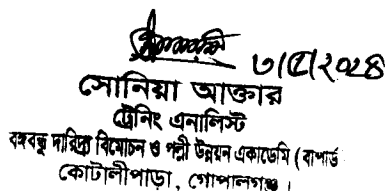 ৩/৫/২০২৪
সোনিয়া আক্তার
ট্রেনিং এনালিস্ট
বঙ্গবন্ধু দারিদ্র্য বিমোচন ও পল্লী উন্নয়ন একাডেমি (বাপার্ড
কোটালীপাড়া, গোপালগঞ্জ।